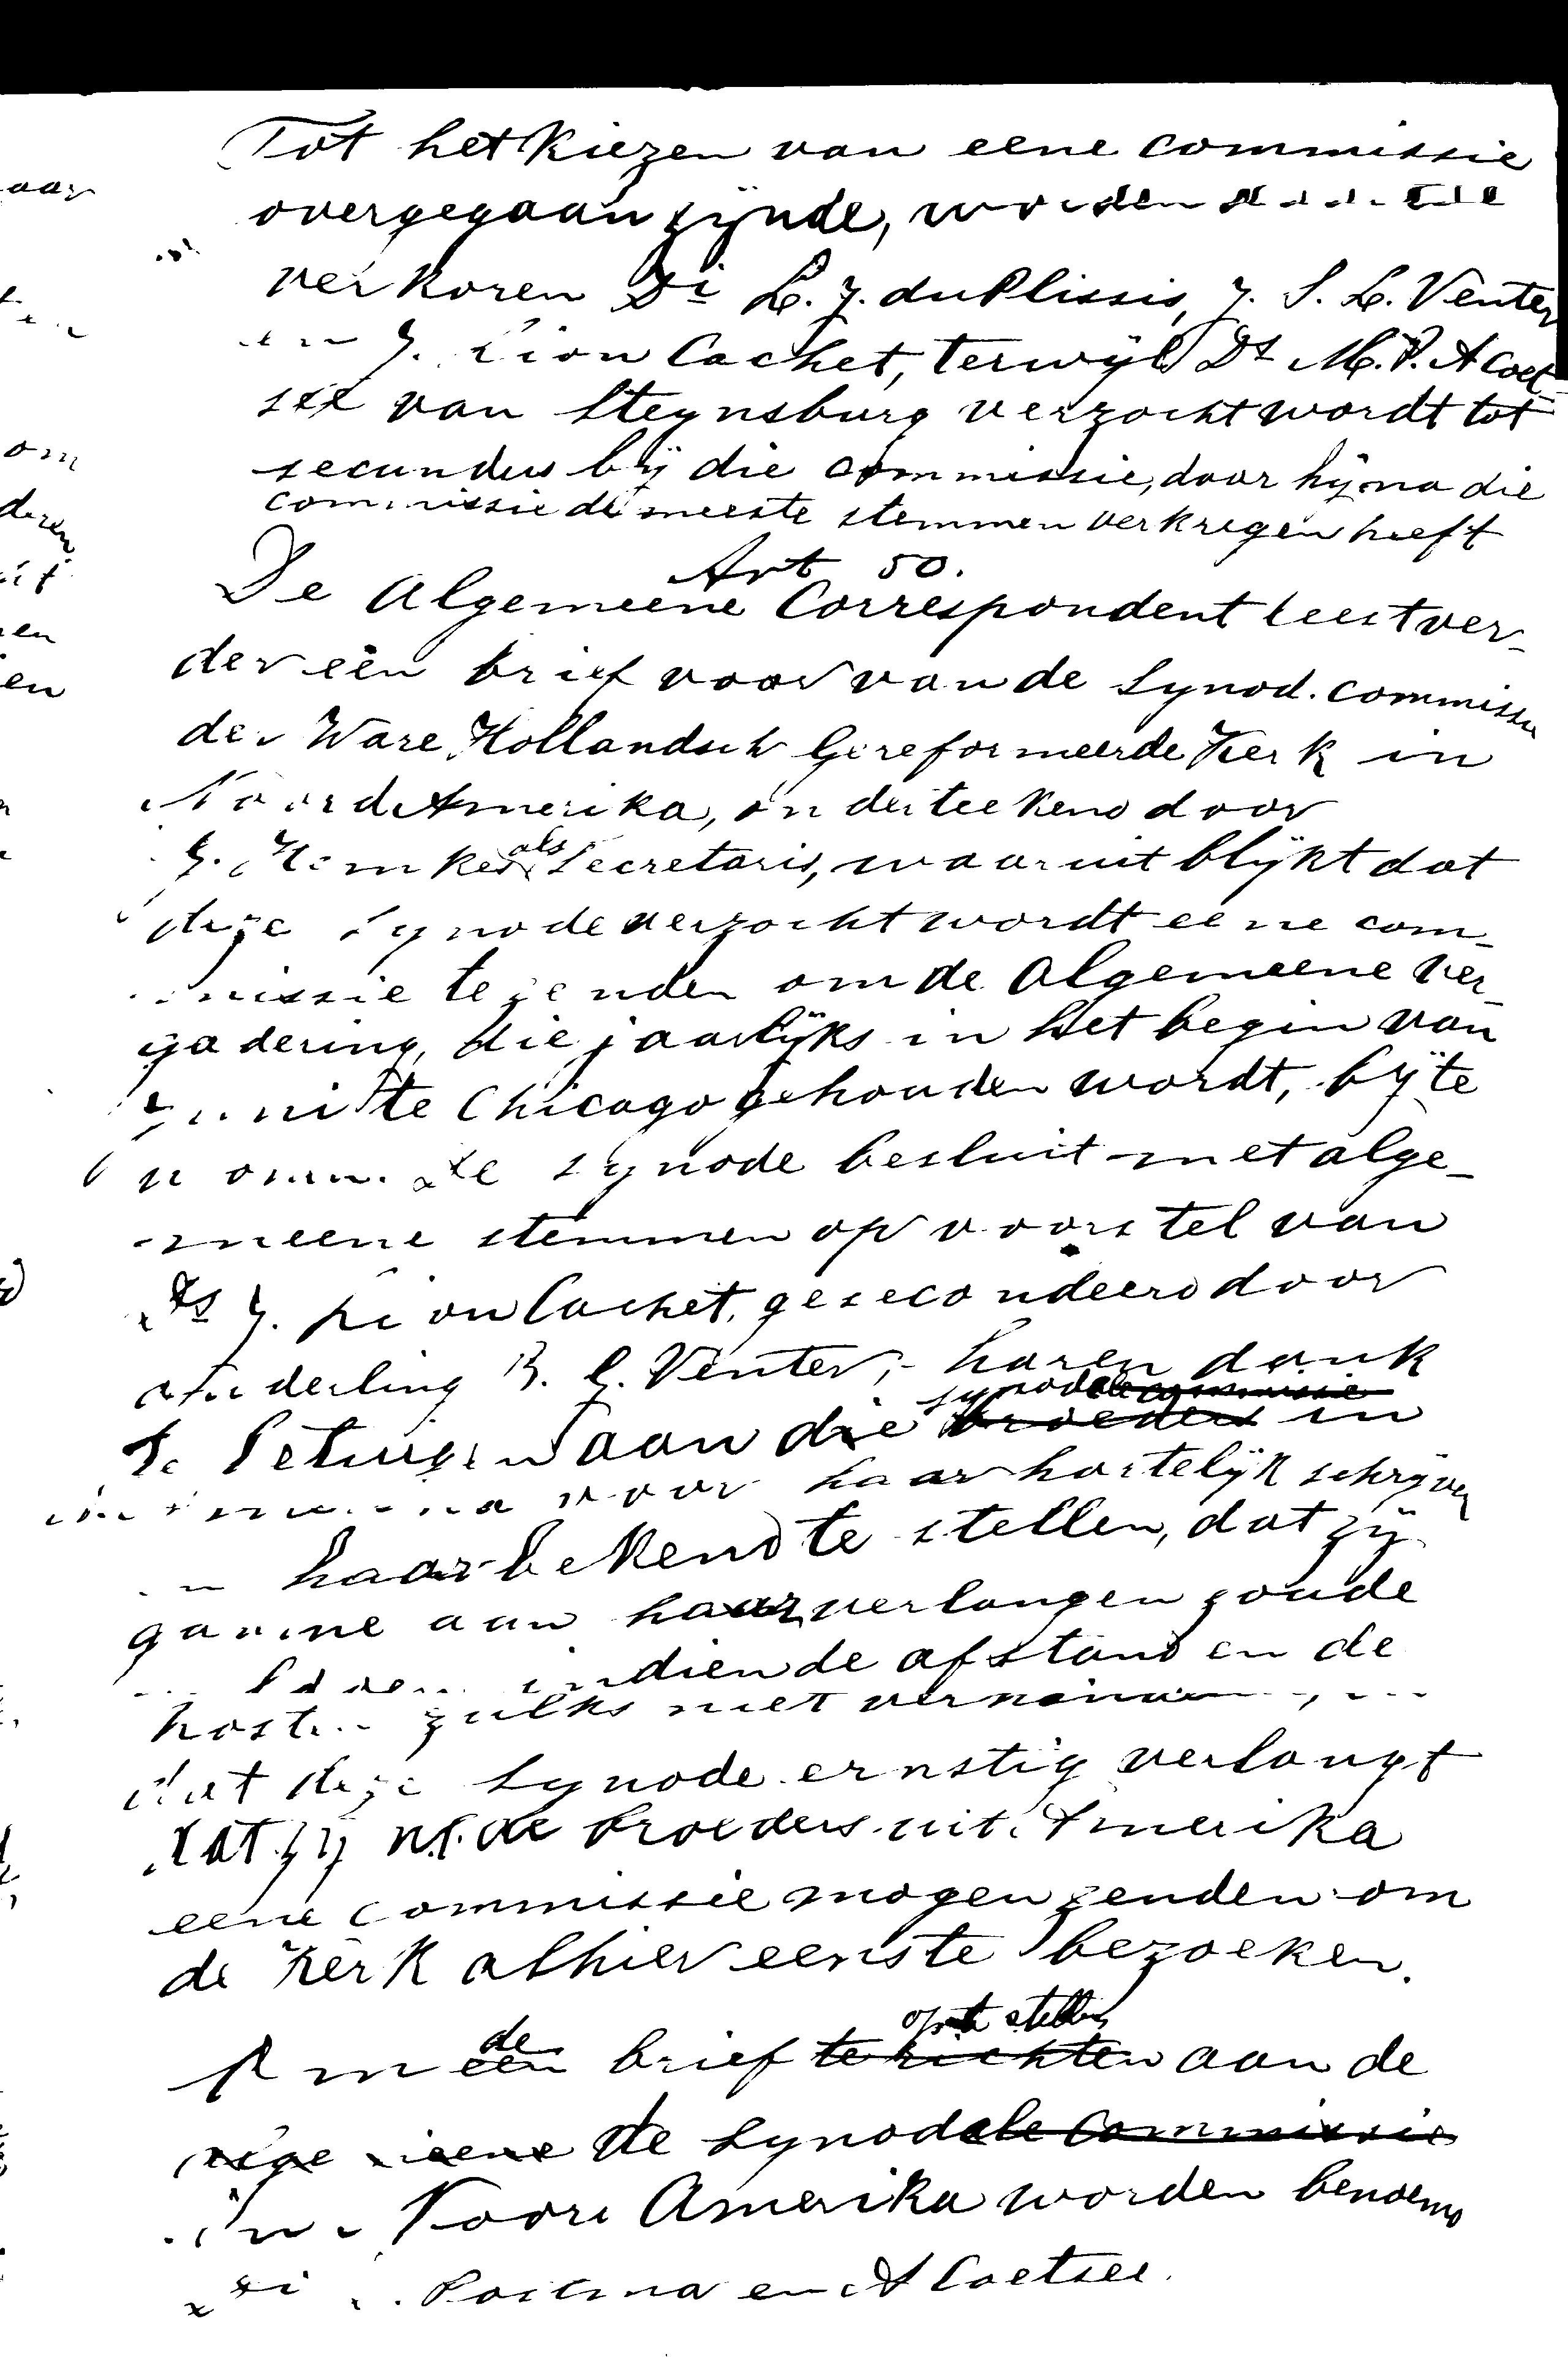 Tot het kiezen van eene commissie
overgegaan zijnde, worden
verkoren Di L. J. du Plissis, J. S. L. Venter
en J. Lion Cachet, terwijl Ds M. P. A Coet-
see van Steynsburg verzocht wordt tot
secundus bij die commissie, daar hij na die
commissie de meeste stemmen verkregen heeft
Art 50.
De Algemeene Correspondent leest ver-
der een brief voor van de Synod. commissie
der Ware Hollandsch Gereformeerde Kerk in
Noord Amerika, onderteekend door
J. als Secretaris, waaruit blijkt dat
deze Synode verzocht wordt eene com-
missie te zenden om de Algemeene Ver-
gadering, die jaarlijks in het begin van
Juni te Chicago gehouden wordt, bij te
wonen. De synode besluit met alge-
meene stemmen op voorstel van
Ds J. Lion Cachet, gesecondeerd door
ouderling B. G. Venter, haren dank
te betuigen aan die synodale commissie broeders in
voor haar hartelijk schrijven
en haar bekend te stellen, dat zij
gaarne aan haar verlangen zoude
voldoen indien de afstand en de
kosten zulks niet
dat deze Synode ernstig verlangt
dat zij nl. de broeders uit Amerika
eene commissie mogen zenden om
de Kerk alhier eens te bezoeken.
Om een de brief te richten op te stellen aan de
de Synodale Commissie
in Noord Amerika worden benoemd
Di Postma en A Coetsee.